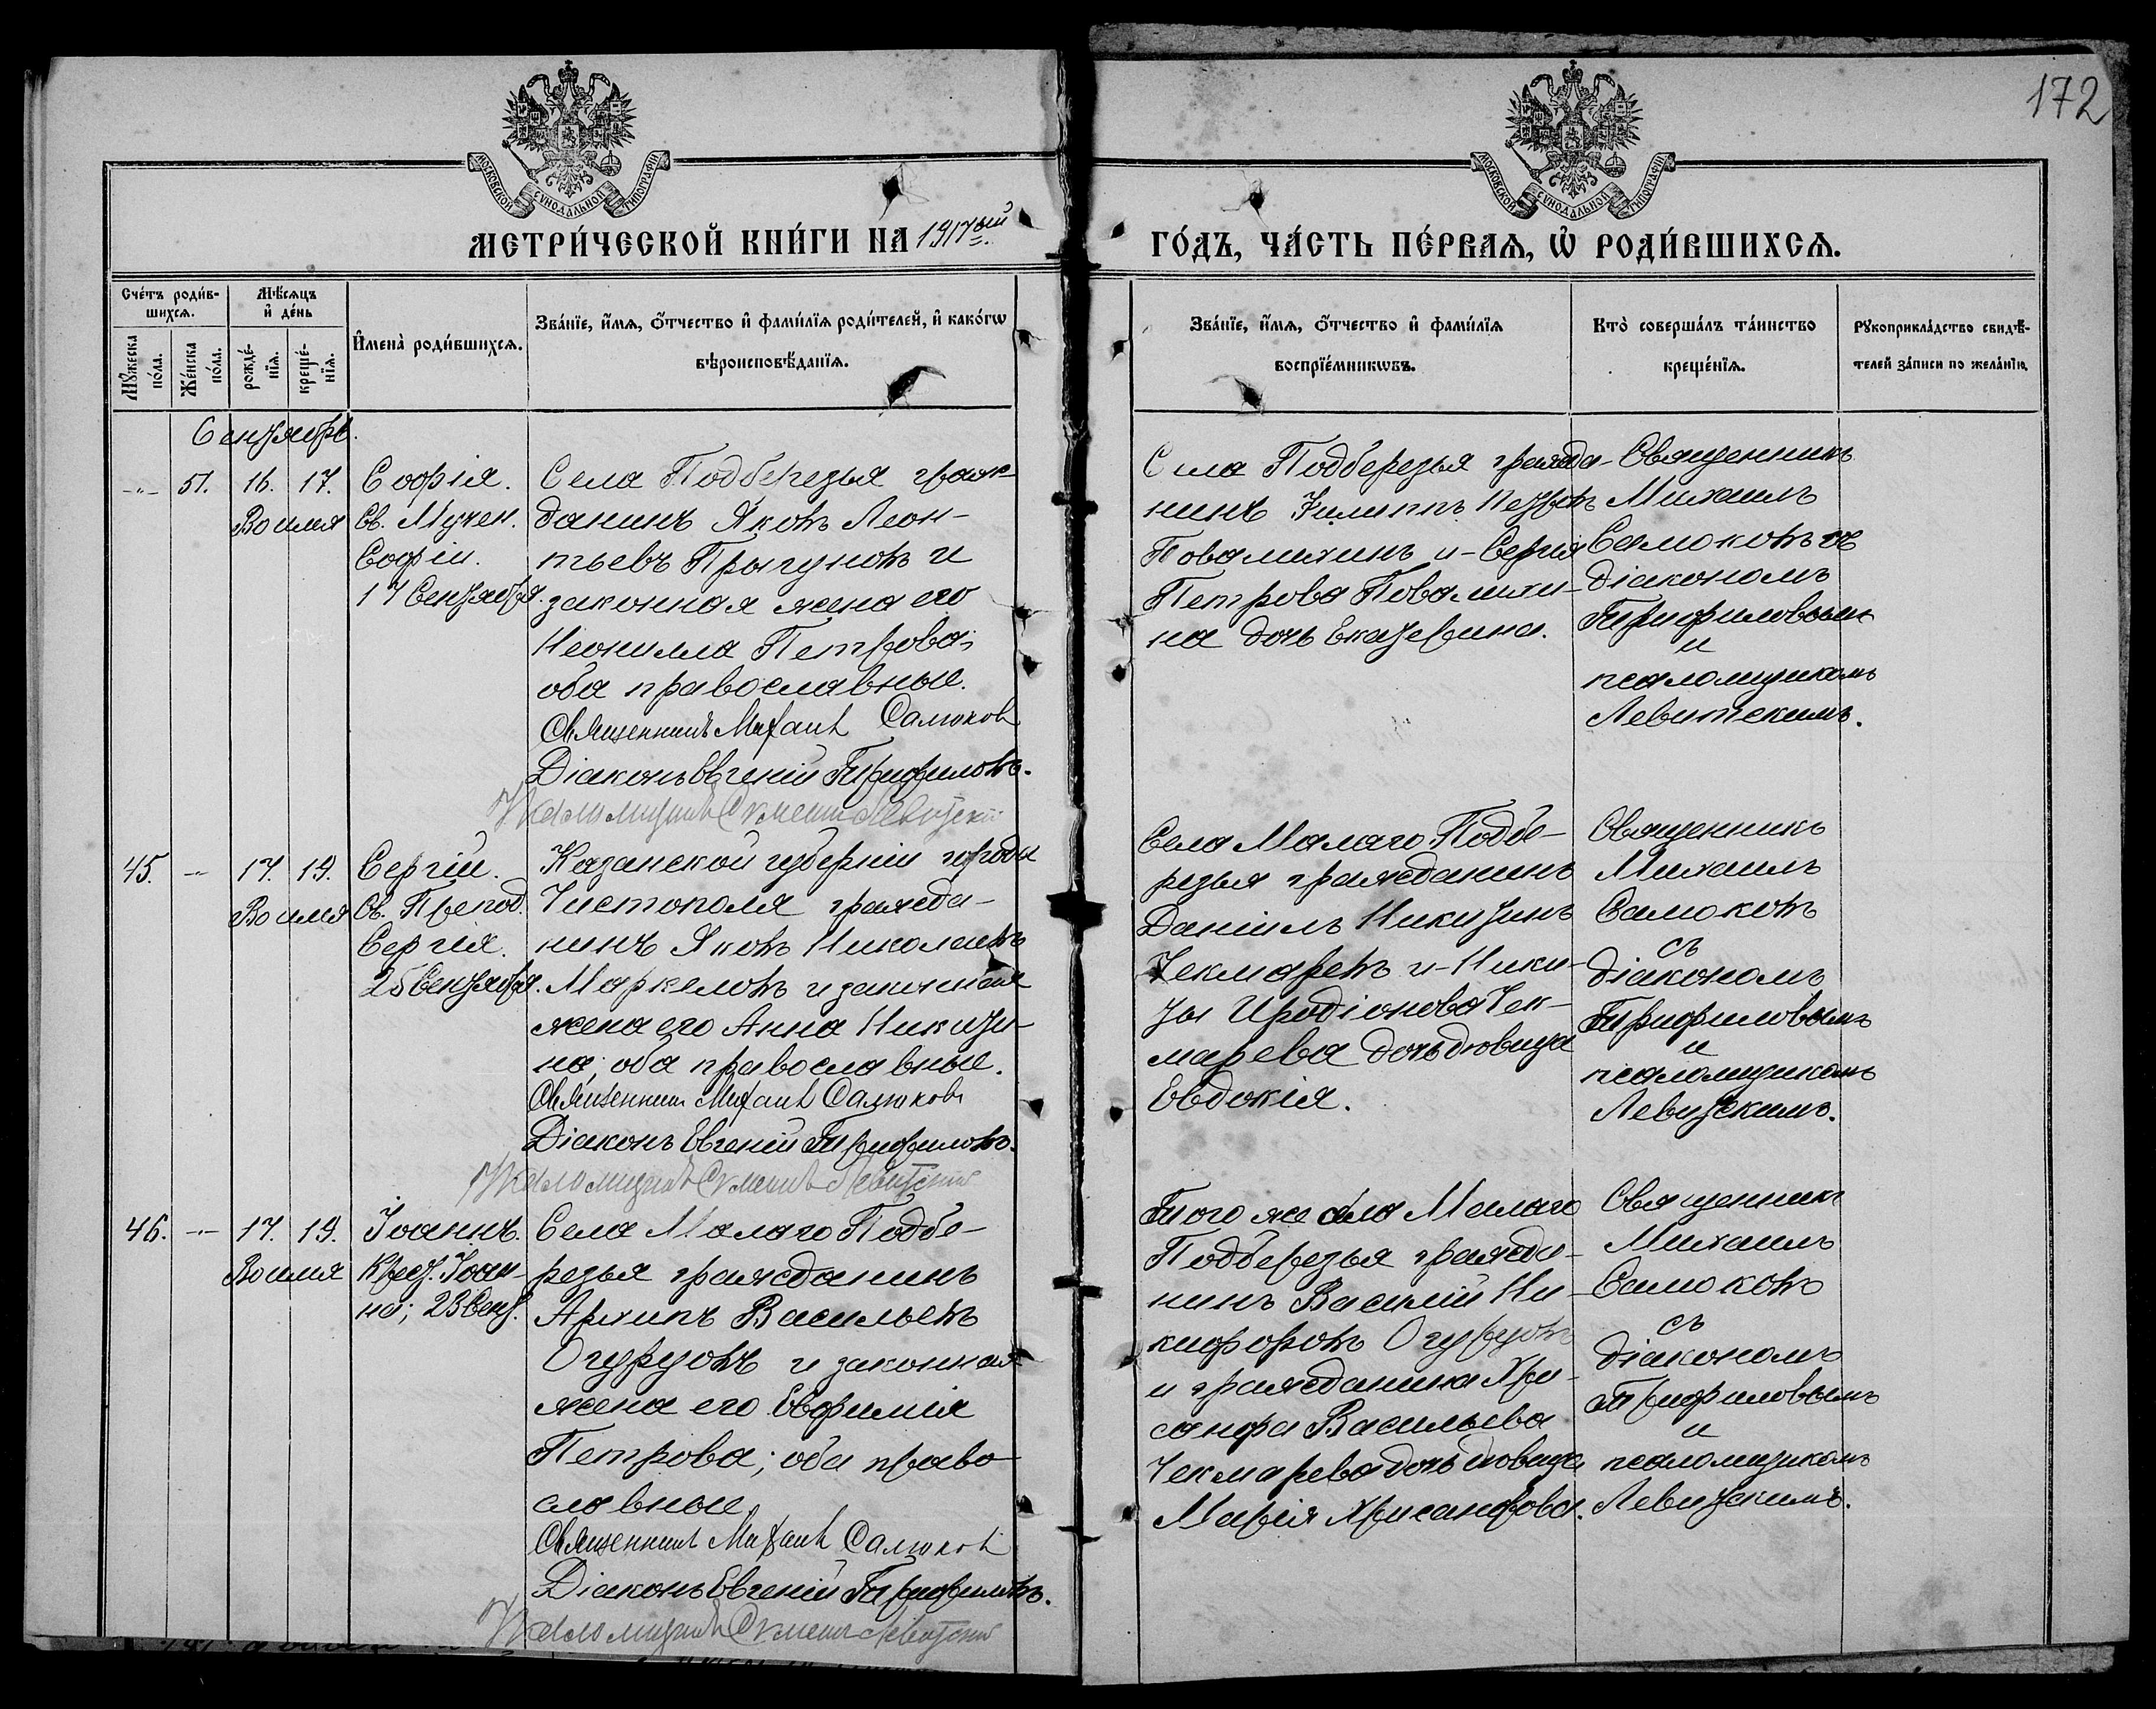 172
МОСКОВСКОЙ СѴНОДАЛЬНОЙ ТИПОГРАФІИ
МОСКОВСКОЙ СѴНОДАЛЬНОЙ ТИПОГРАФІИ
МЕТРИ́ЧЕСКОЙ КНИ́ГИ НА 1917ый
ГО́ДЪ, ЧА́СТЬ ПЕ́РВАѦ, Ѡ РОДИ́ВШИХСѦ.
Сче́тъ роди́в-
шихсѧ.
Мꙋ́жеска по́ла.
Же́нска по́ла.
Мѣ́сѧцъ
и҆ де́нь
рожде́-
нїѧ.
креще́-
нїѧ.
И҆мена̀ роди́вшихсѧ.
Зва́нїе, и҆́мѧ, ѻ҆́тчество и҆ фами́лїѧ роди́телей, и҆ како́гѡ
вѣроисповѣ́данїѧ.
Зва́нїе, и҆́мѧ, ѻ҆́тчество и҆ фами́лїѧ
воспрїе́мникѡвъ.
Кто̀ соверша́лъ та́инство
креще́нїѧ.
Рꙋкоприкла́дство свидѣ́-
телей за́писи по жела́нїю.
Сентябрь.
-"- 51. 16. 17.
Во имя
Софія.
Св. Мучен.
Софіи.
17 Сентября.
Села Подберезья граж-
данинъ Яковъ Леон-
тьевъ Прыгуновъ и
законная жена его
Неонилла Петрова;
оба православные.
Священникъ Михаил Самоков
Діаконъ Евгеній Трифиловъ.
Псаломщикъ Левитскій
Села Подберезья гражда-
нинъ Филиппъ Петровъ
Повалихинъ и Сергія
Петрова Поваляхи-
на дочь Екатерина.
Священникъ
Михаилъ
Самоковъ съ
діакономъ
Трифиловымъ
и
псаломщикомъ
Левитскимъ.
45. -"- 17. 19.
Во имя
Сергій.
Св. Препод.
Сергія.
25 Сентября.
Казанской губерніи города
Чистополя гражда-
нинъ Яковъ Николаевъ
Маркеловъ и законная
жена его Анна Никити-
на; оба православные.
Священникъ Михаил Самоковъ
Діаконъ Евгеній Трифиловъ.
Псаломщикъ Левитскій
Села Малаго Подбе-
резья гражданинъ
Даніилъ Никитинъ
Чекмаревъ и Ники-
ты Иродіонова Чек-
марева дочь девица
Евдокія.
Священникъ
Михаилъ
Самоковъ
съ
діакономъ
Трифиловымъ
и
псаломщикомъ
Левитскимъ.
46. -"- 17. 19.
Во имя
Іоаннъ.
Крест. Іоан-
на; 23 Сент.
Села Малаго Подбе-
резья гражданинъ
Архипъ Васильевъ
Огурцовъ и законная
жена его Евфимія
Петрова; оба право-
славные
Священникъ Михаил Самоков
Діаконъ Евгеній Трифиловъ.
Псаломщикъ Левитскій
Того же села Малаго
Подберезья гражда-
нинъ Василій Ни-
кифоровъ Огурцовъ
и гражданина Хри-
санфа Васильева
Чекмарева дочь девица
Марія Хрисанфова.
Священникъ
Михаилъ
Самоковъ
съ
діакономъ
Трифиловымъ
и
псаломщикомъ
Левитскимъ.